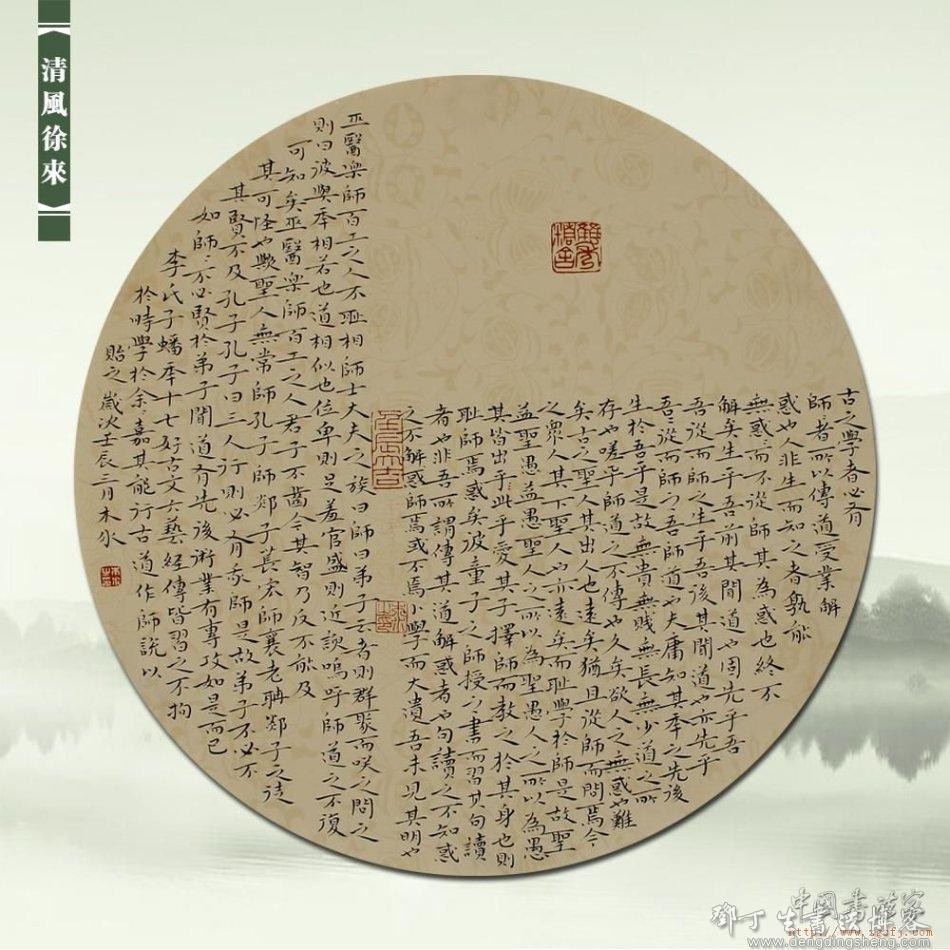 清風徐來
古之學者必有
師者所以傳道受業解
惑也人非生而知之者孰能
無惑惑而不從師其為惑也終不
解矣生乎吾前其聞道也固先乎吾
吾從而師之生乎吾後其聞道也亦先乎
吾從而師之吾師道也夫庸知其年之先後
生於吾乎是故無貴無賤無長無少道之所
存也嗟乎師道之不傳也久矣欲人之無惑也難
矣古之聖人其出人也遠矣猶且從師而問焉今
之眾人其下聖人也亦遠矣而耻學於師是故聖
益聖愚益愚聖人之所以為聖愚人之所以為愚
其皆出乎此乎愛其子擇師而教之於其身也則
耻師焉惑矣彼童子之師授之書而習其句讀
者也非吾所謂傳其道解惑者也句讀之不知惑
之不解或師焉或不焉小學而大遺吾未見其明也
巫醫樂師百工之人不耻相師士大夫之族曰師曰弟子云者則群聚而咲之問之
則曰彼與年相若也道相似也位卑則足羞官盛則近諛嗚呼師道之不復
可知矣巫醫樂師百工之人君子不齒今其智乃反不能及
其可怪也歟聖人無常師孔子師郯子萇宏師襄老聃郯子之徒
其賢不及孔子孔子曰三人行則必有我師是故弟子不必不
如師師不必賢於弟子聞道有先後術業有專攻如是而已
李氏子蟠年十七好古文六藝經傳皆習之不拘
於時學於余余嘉其能行古道作師說以
貽之歲次壬辰三月木水
中國書法家
鄧丁生書法博客
http://www.zgsfj.com
www.dengdingsheng.com